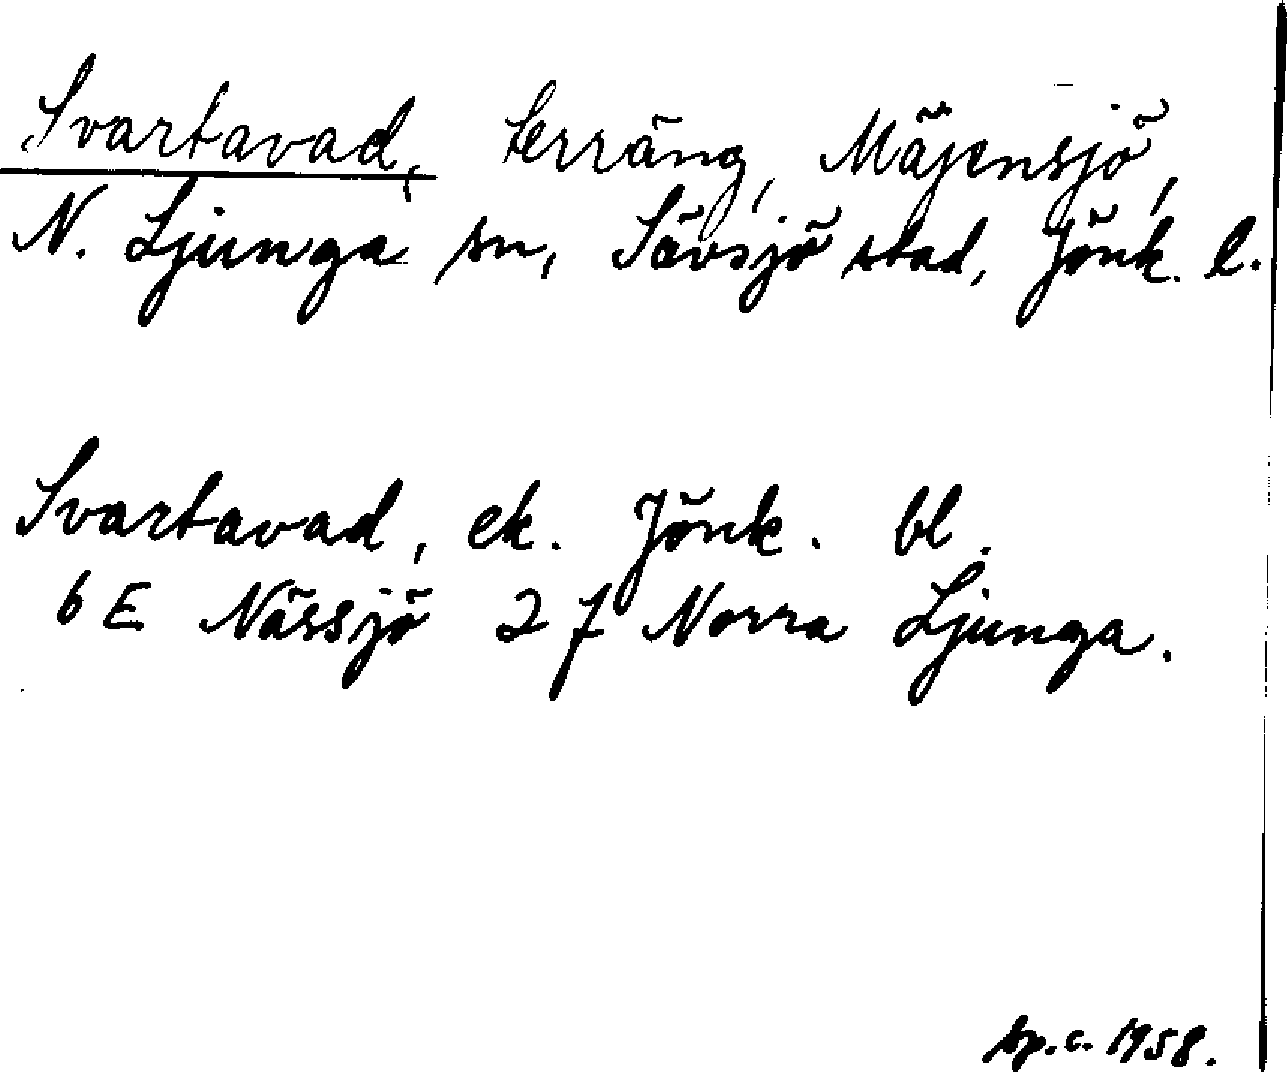 Svartavad, terräng, Mäjensjö,
N. Ljunga sn, Sävsjö stad, Jönk. l.
Svartavad, ek. Jönk. bl.
6 E Nässjö 2 f Norra Ljunga.
tp.c. 1958.